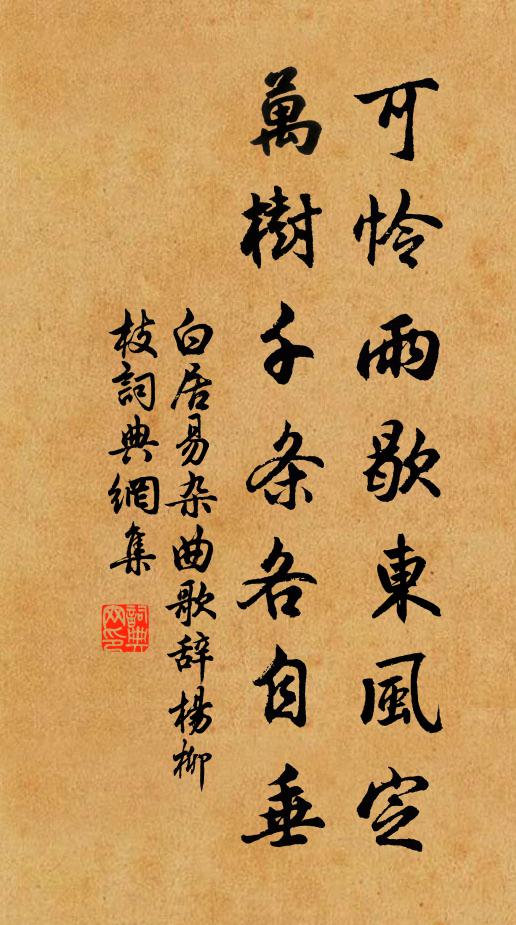 可怜雨歇東風定
萬樹千条各自垂
白居易杂曲歌辞楊柳
枝詞典網集
詞典網印